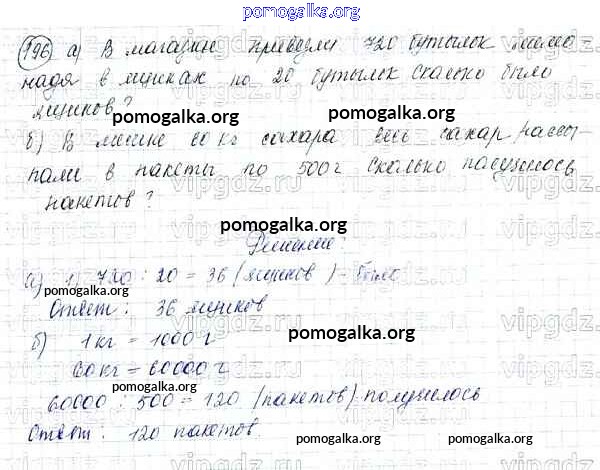 pomogalka.org
196 а) В магазин привезли 720 бутылок лимо-
нада в ящиках по 20 бутылок сколько было
ящиков?
pomogalka.org
pomogalka.org
б) В мешке 60 кг сахара весь сахар рассы-
пали в пакеты по 500 г сколько получилось
vipgdz.ru
пакетов?
pomogalka.org
Решение:
а) 1) 720 : 20 = 36 (ящиков) - было
pomogalka.org
Ответ: 36 ящиков
б) 1 кг = 1000 г
pomogalka.org
60 кг = 60000 г
pomogalka.org
60000 : 500 = 120 (пакетов) получилось
Ответ: 120 пакетов.
pomogalka.org
pomogalka.org